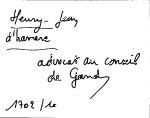 Henry-Jean
d'hamere
advocat au conseil
de Gand
1702/10